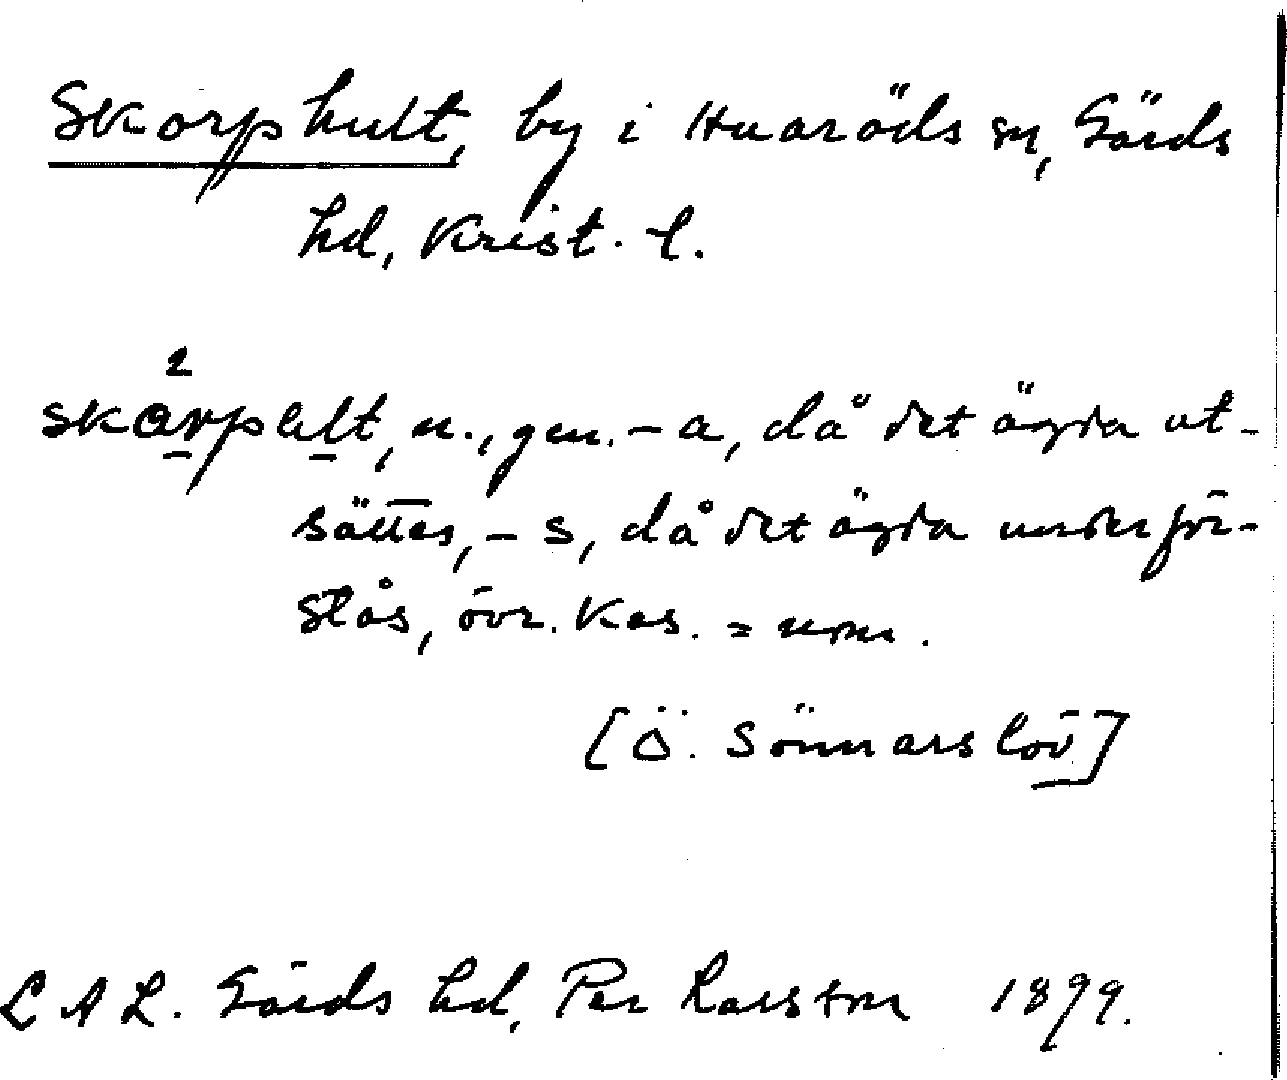 Skorphult, by i Huaröds sn, Gärds
hd, Krist. l.
2
skårpelt, n., gen. -a, då det ägda ut-
sättes, -s, då det ägda underför-
stås, övr. kas. = nom.
[Ö. Sönnarslöv]
LAL. Gärds hd, Per Larsson 1899.